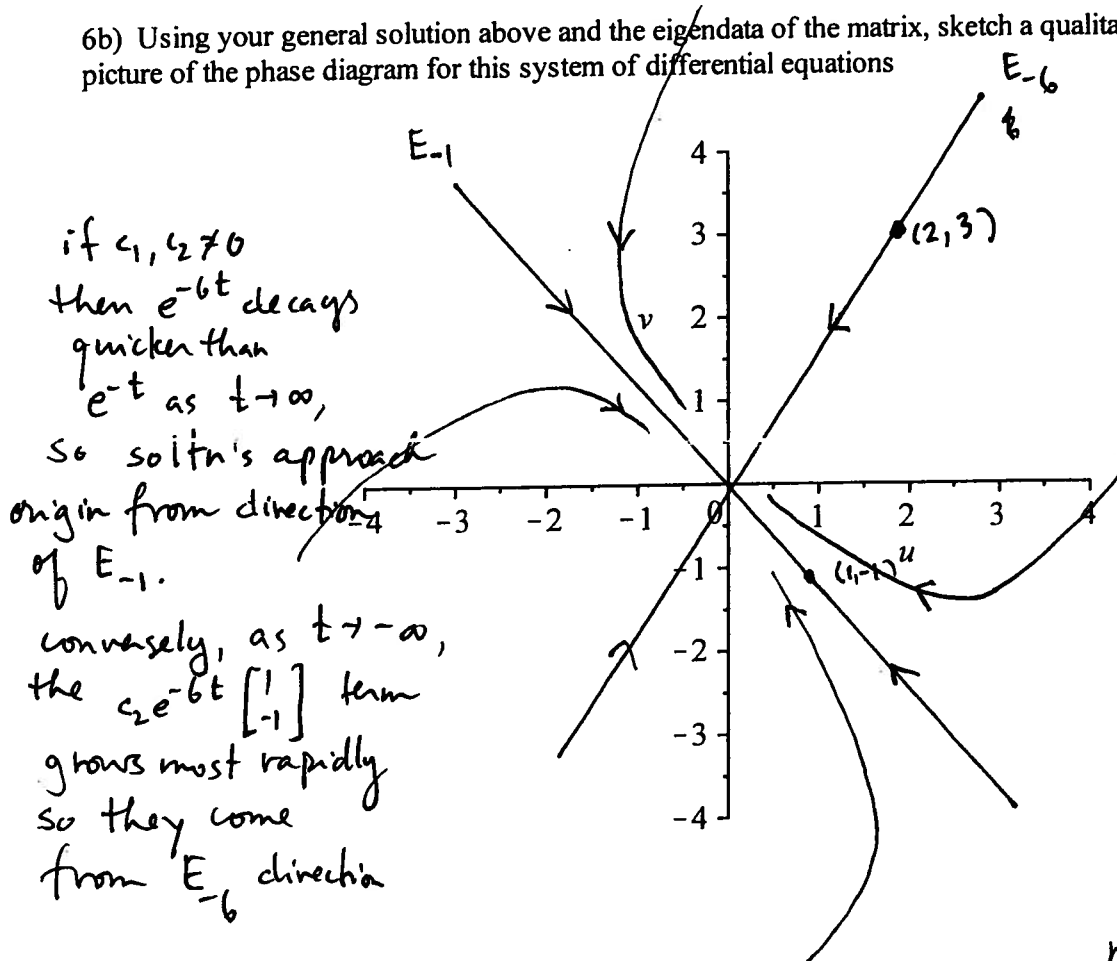 6b) Using your general solution above and the eigendata of the matrix, sketch a qualita
picture of the phase diagram for this system of differential equations
E₋₆
E₋₁
if c₁, c₂ ≠ 0
then e⁻⁶ᵗ decays
quicker than
e⁻ᵗ as t→∞,
so soltn's approach
origin from direction
of E₋₁.
conversely, as t→-∞,
the c₂e⁻⁶ᵗ [1 -1] term
grows most rapidly
so they come
from E₋₆ direction
4
3
2
1
-1
-2
-3
-4
v
-4 -3 -2 -1 0 1 2 3 4
u
(2,3)
(1,-1)